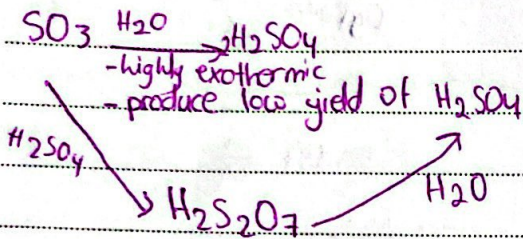 SO3 H2O → 2H2SO4
-highly exothermic
- produce low yield of H2SO4
H2SO4
H2S2O7
H2O